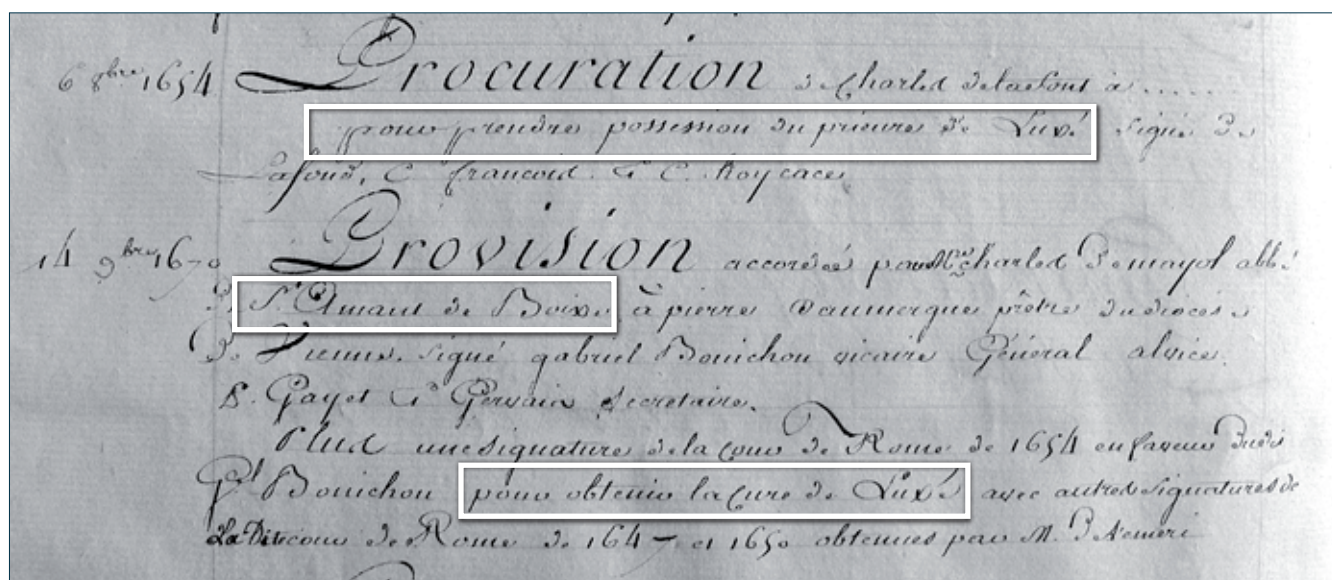 6 8bre 1654 Procuration de Charles delafont à .....
pour prendre possession du prieuré de Luxé signé de
Lafond, C. francois. & C. Roy
14 9bre 1670 Provision accordée par Mre charles Demayol abbé
de St Amant de Boixe à pierre Daumergue prêtre du diocese
De Vienne. signé gabriel Bouichon vicaire Général
B. Gayet & Gervain secretaire.
Plus une signature de la cour de Rome de 1654 en faveur dudit
Gel Bouichon pour obtenir la cure de Luxé avec autres signatures de
La Dite cour de Rome de 1647 et 1650 obtenues par M. D